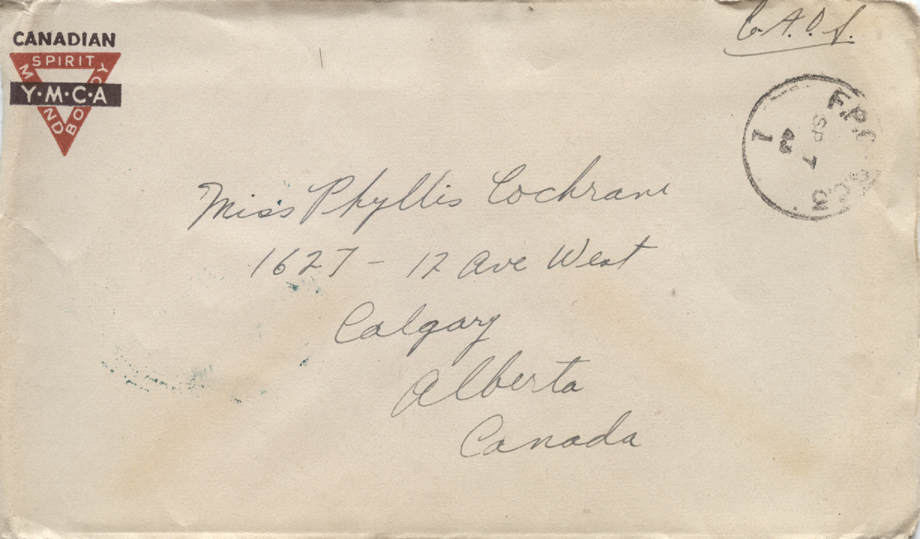 CANADIAN
SPIRIT
MIND
BODY
Y·M·C·A
C.A.O.S.
F.P.O.
SP 7
1
Miss Phyllis Cochrane
1627 - 12 Ave West
Calgary
Alberta
Canada